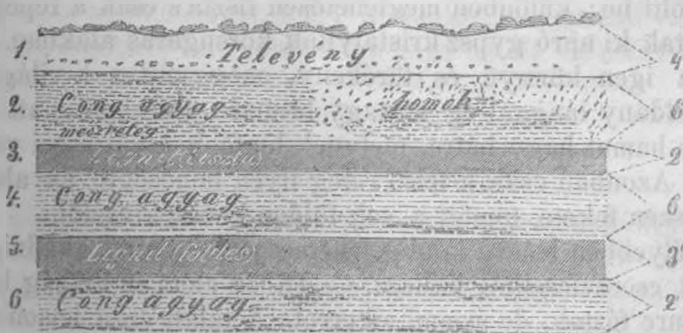 1. Televény 4
2. Cong agyag homok 6
3. Lignit 2
4. Cong agyag 6
5. Lignit (földes) 3'
6 Cong agyag 2'